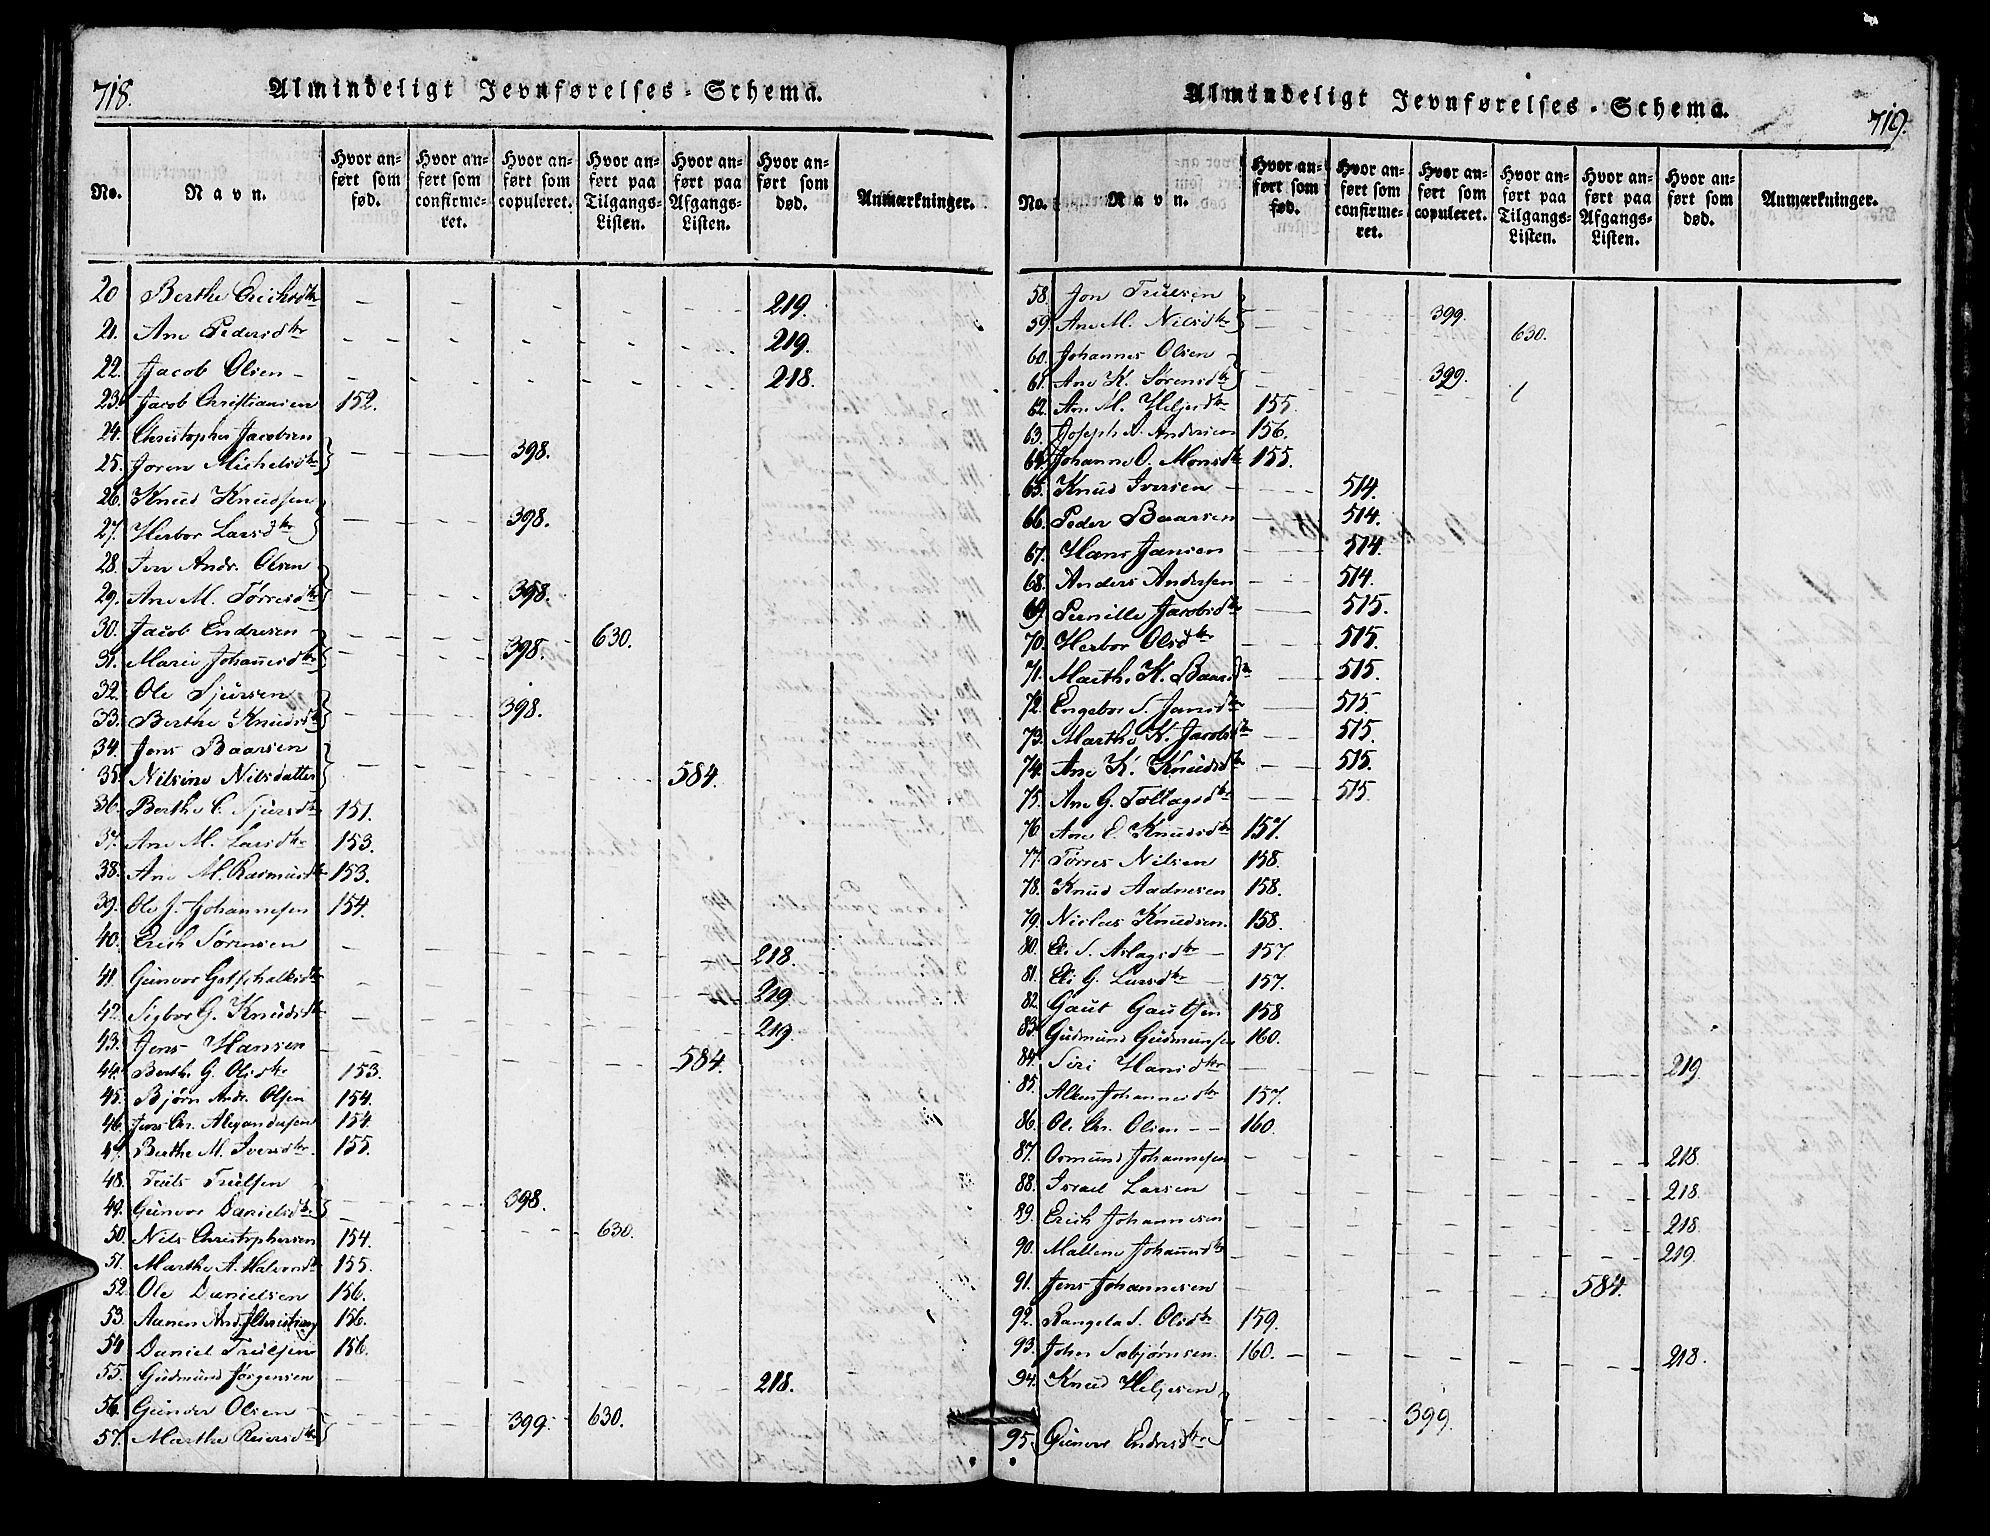 718.
Almindeligt Jevnførelses-Schema.
No. Navn. Hvor anført som fød. Hvor anført som confirmeret. Hvor anført som copuleret. Hvor anført paa Tilgangs-Listen. Hvor anført paa Afgangs-Listen. Hvor anført som død. Anmærkninger.
20 Berthe Erichsdtr 219.
21. Ane Pedersdtr 219.
22. Jacob Olsen 218.
23. Jacob Christiansen 152.
24. Christopher Jacobsen
25. Joren Michelsdtr 398.
26. Knud Knudsen
27. Herbor Larsdtr 398.
28. Iver Andr. Olsen
29. Ane M. Tørresdtr 398.
30. Jacob Endresen 630.
31. Marie Johannesdtr 398.
32. Ole Sjursen
33. Berthe Knudsdtr 398.
34. Jens Baarsen
35. Nilsine Nilsdatter 584.
36. Berthe C. Sjursdtr 151.
37. Ane M. Larsdtr 153.
38. Ane M. Rasmusdtr 153.
39. Ole J. Johannesen 154.
40. Erich Sørensen 218.
41. Gunvor Gotschalksdtr 219
42. Sigbor G. Knudsdtr 219.
43. Jens Hansen 584.
44. Berthe G. Olsdtr 153.
45. Bjørn Andr. Olsen 154.
46. Jens Chr. Alexandersen 154.
47. Berthe M. Iversdtr 155.
48. Truls Trulsen
49. Gunvor Danielsdtr 398.
50. Nils Christophersen 154. 630.
51. Marthe A. Halvorsdtr 155.
52. Ole Danielsen 156.
53. Aanen And. 156.
54 Daniel Trulsen 156.
55. Gudmund Jørgensen 218.
56. Gunder Olsen
57. Marthe Reiersdtr 399. 630.
719.
Almindeligt Jevnførelses-Schema.
No. Navn. Hvor anført som fød. Hvor anført som confirmeret. Hvor anført som copuleret. Hvor anført paa Tilgangs-Listen. Hvor anført paa Afgangs-Listen. Hvor anført som død. Anmærkninger.
58. Jon Trulsen
59. Ane M. Nilsdtr 399. 630.
60. Johannes Olsen
61. Ane K. Sørensdtr 399.
62. Ane M. Heljesdtr 155.
63. Joseph A. Andersen 156.
64. Johanne O. Monsdtr 155.
65. Knud Iversen 514.
66. Peder Baarsen 514.
67. Hans Jansen 514.
68. Anders Andersen 514.
69. Pernille Jacobsdtr 515.
70. Herbor Olsdtr 515.
71. Marthe K. Baarsdtr 515.
72. Engebor S. Jansdtr 515.
73. Marthe K. Jacobsdtr 515.
74. Ane K. Knudsdtr 515.
75. Ane G. Tollagsdtr 515.
76 Ane E. Knudsdtr 157.
77. Tørres Nilsen 158.
78. Knud Aadnesen 158.
79. Niclas Knudsen. 158.
80. Eli S. Aslagsdtr 157.
81. Eli G. Larsdtr 157.
82. Gaut Gautsen 158
83. Gudmund Gudmunsen 160.
84. Siri Hansdtr 219.
85. Johannesdtr 157.
86. Ole Chr. Olsen 160.
87. Ormund Johannesen 218.
88. Israel Larsen 218.
89. Erich Johannesen 218.
90. Mallene Johannesdtr 219.
91. Jens Johannesen 584.
92. Rangela S. Olsdtr 159.
93. John Sæbjørnsen. 160. 218.
94. Knud Heljesen
95. Gunvor Endresdtr 399.